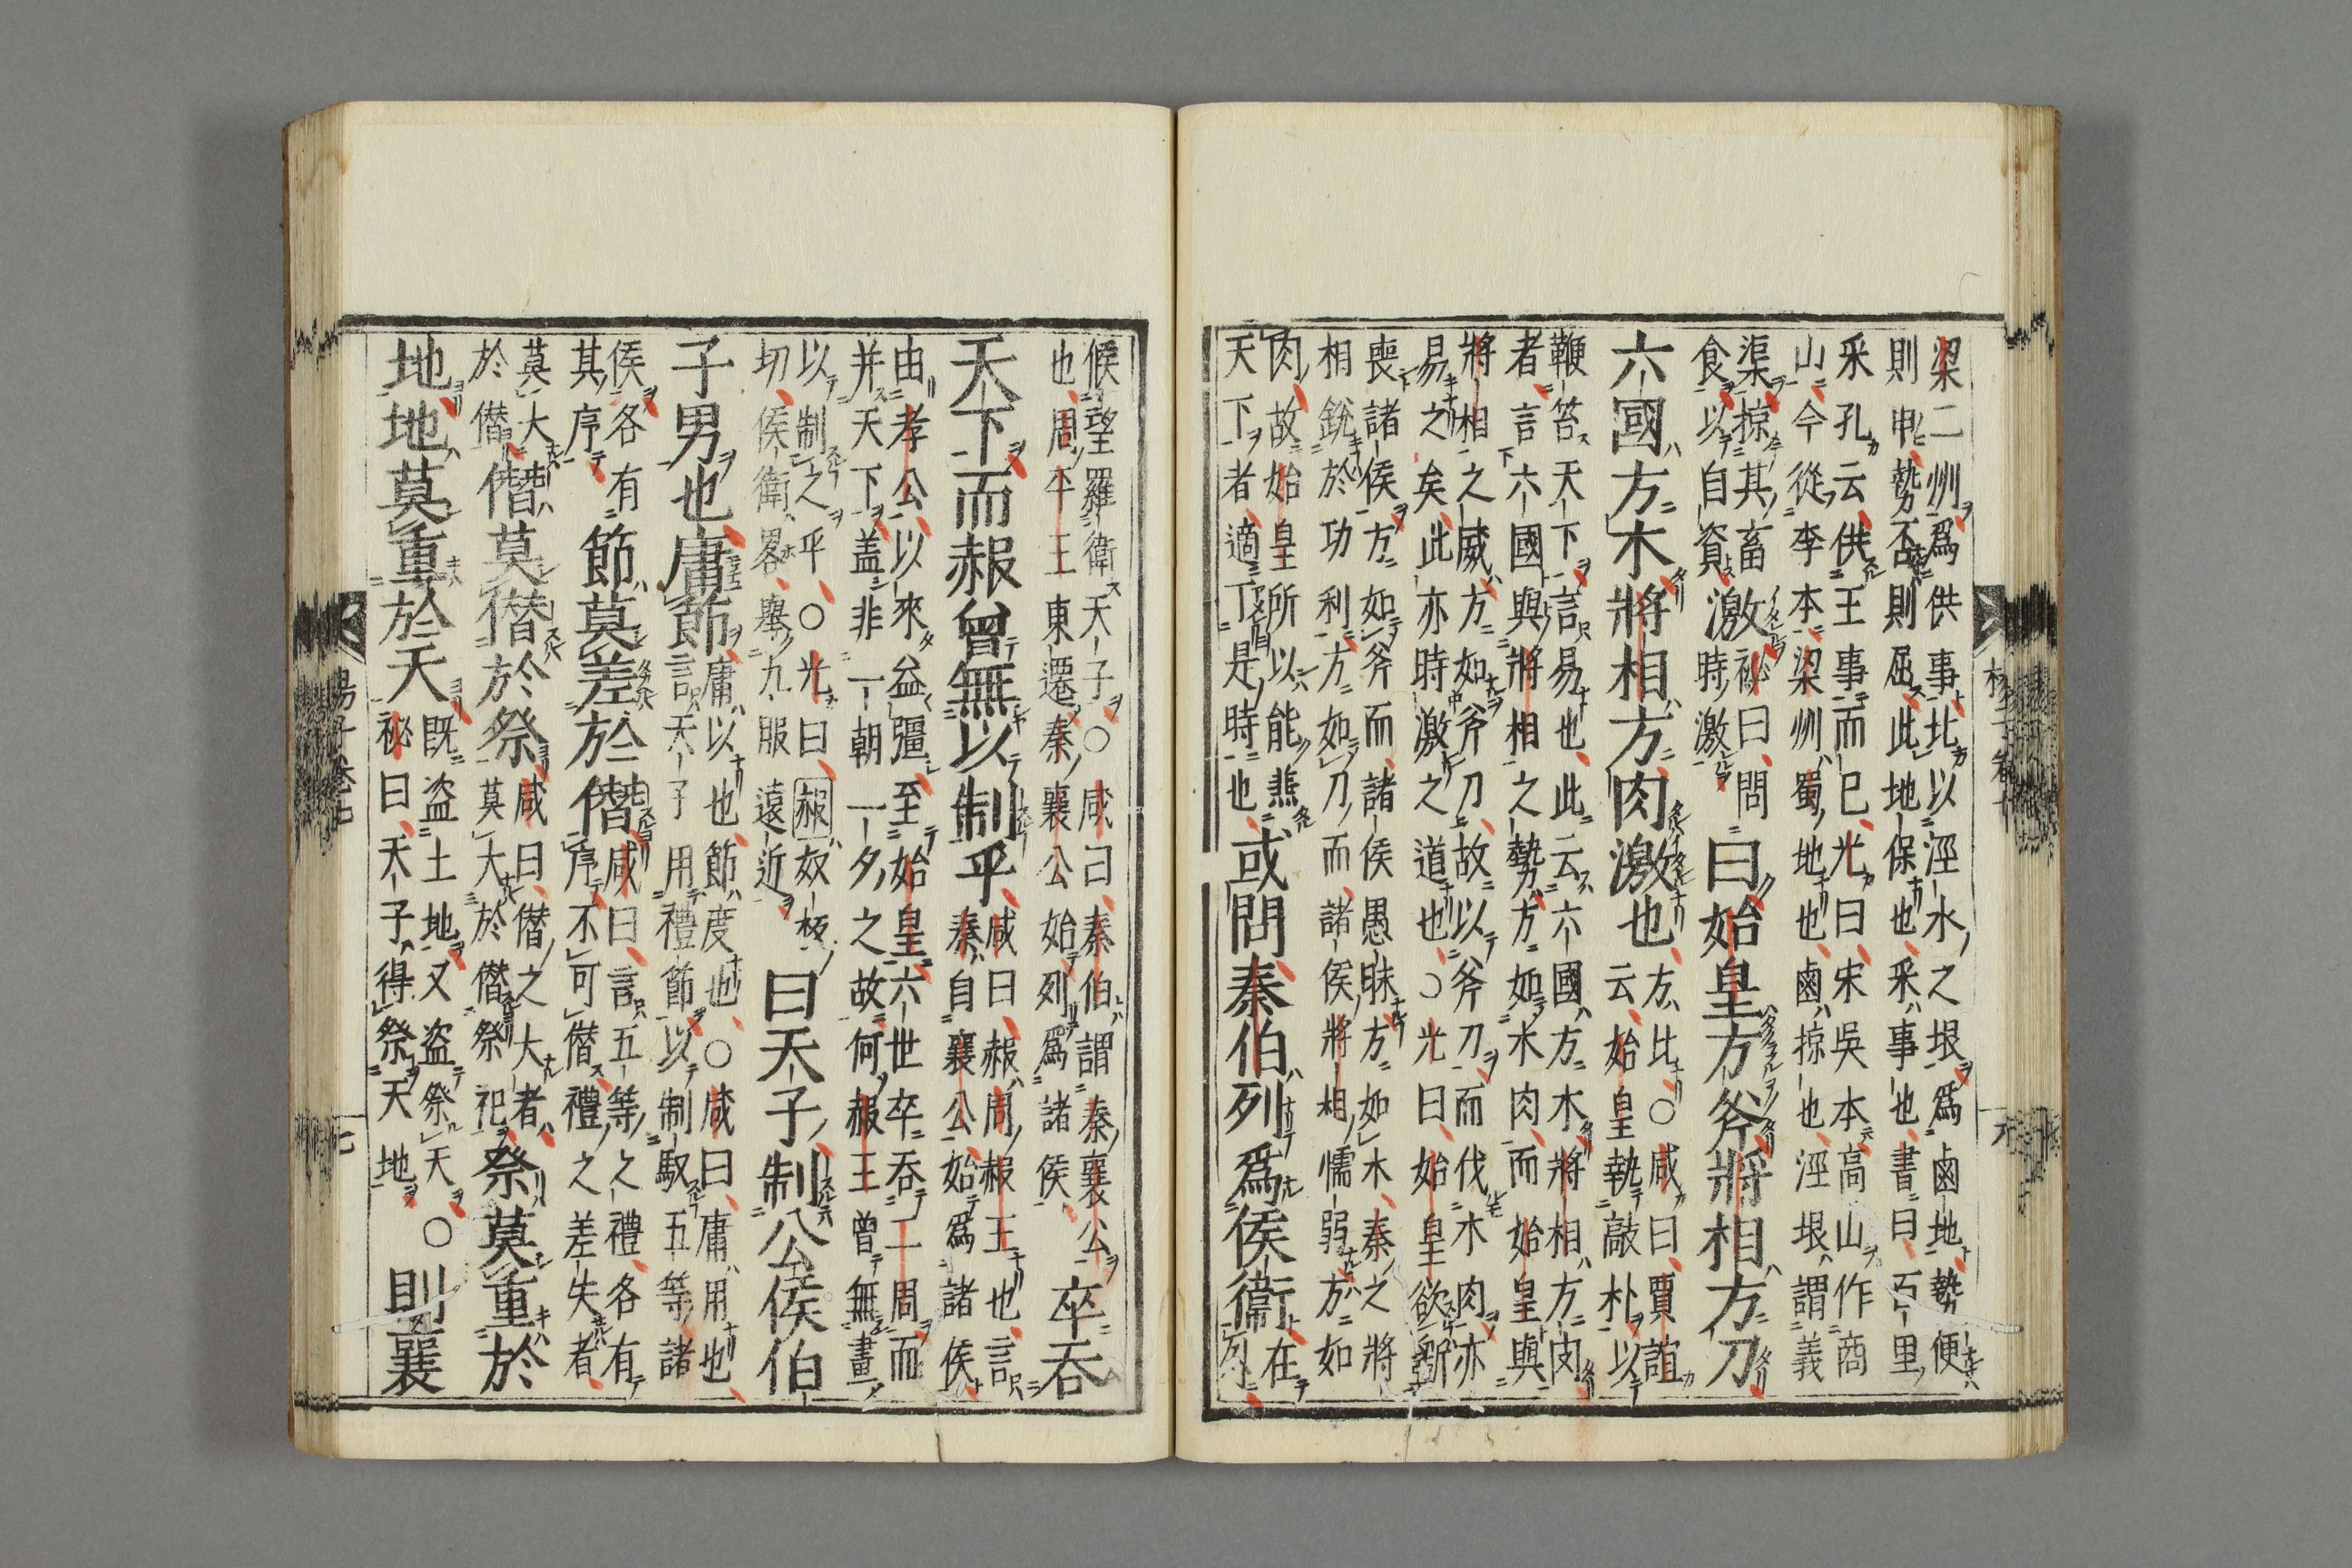 梁二州爲供事北以涇水之垠爲鹵地勢便
則申勢否則屈此地保也采事也書曰百里
采孔云供王事而已光曰宋吳本高山作商
山今從李本梁州蜀地也鹵掠也涇垠謂義
渠掠其畜
食以自資
激
祕曰問
時激
曰始皇方斧將相方刀
六國方木將相方肉激也
方比○咸曰賈誼
云始皇執敲朴以
鞭笞天下言易也此云六國方木將相方肉
者言六國與將相之勢方如木肉而始皇與
將相之威方如斧刀故以斧刀而伐木肉亦
易之矣此亦時激之道也○光曰始皇欲斲
喪諸侯方如斧而諸侯愚昧方如木秦之將
相銳於功利方如刀而諸侯將相懦弱方如
肉故始皇所以能㷊
天下者適丁是時也
或問秦伯列爲侯衞
在
列
候望羅衛天子○咸曰秦伯謂秦襄公
也周平王東遷秦襄公始列爲諸侯
卒吞
天下而赧曾無以制乎
咸曰赧周赧王也言
秦自襄公始爲諸侯
由孝公以來益彊至始皇六世卒吞二周而
并天下蓋非一朝一夕之故何赧王曾無畫
以制之乎○光曰赧奴板
切侯衛畧舉九服遠近
曰天子制公侯伯
子男也庸節
庸以也節度也○咸曰庸用也
言天子用禮節以制馭五等諸
侯各有
其序
節莫差於僭
咸曰言五等之禮各有
序不可僭禮之差失者
莫大
於僭
僭莫僭於祭
咸曰僭之大者
莫大於僭祭祀
祭莫重於
地地莫重於天
既盜土地又盜祭天○
祕曰天子得祭天地
則襄
楊子卷七
七